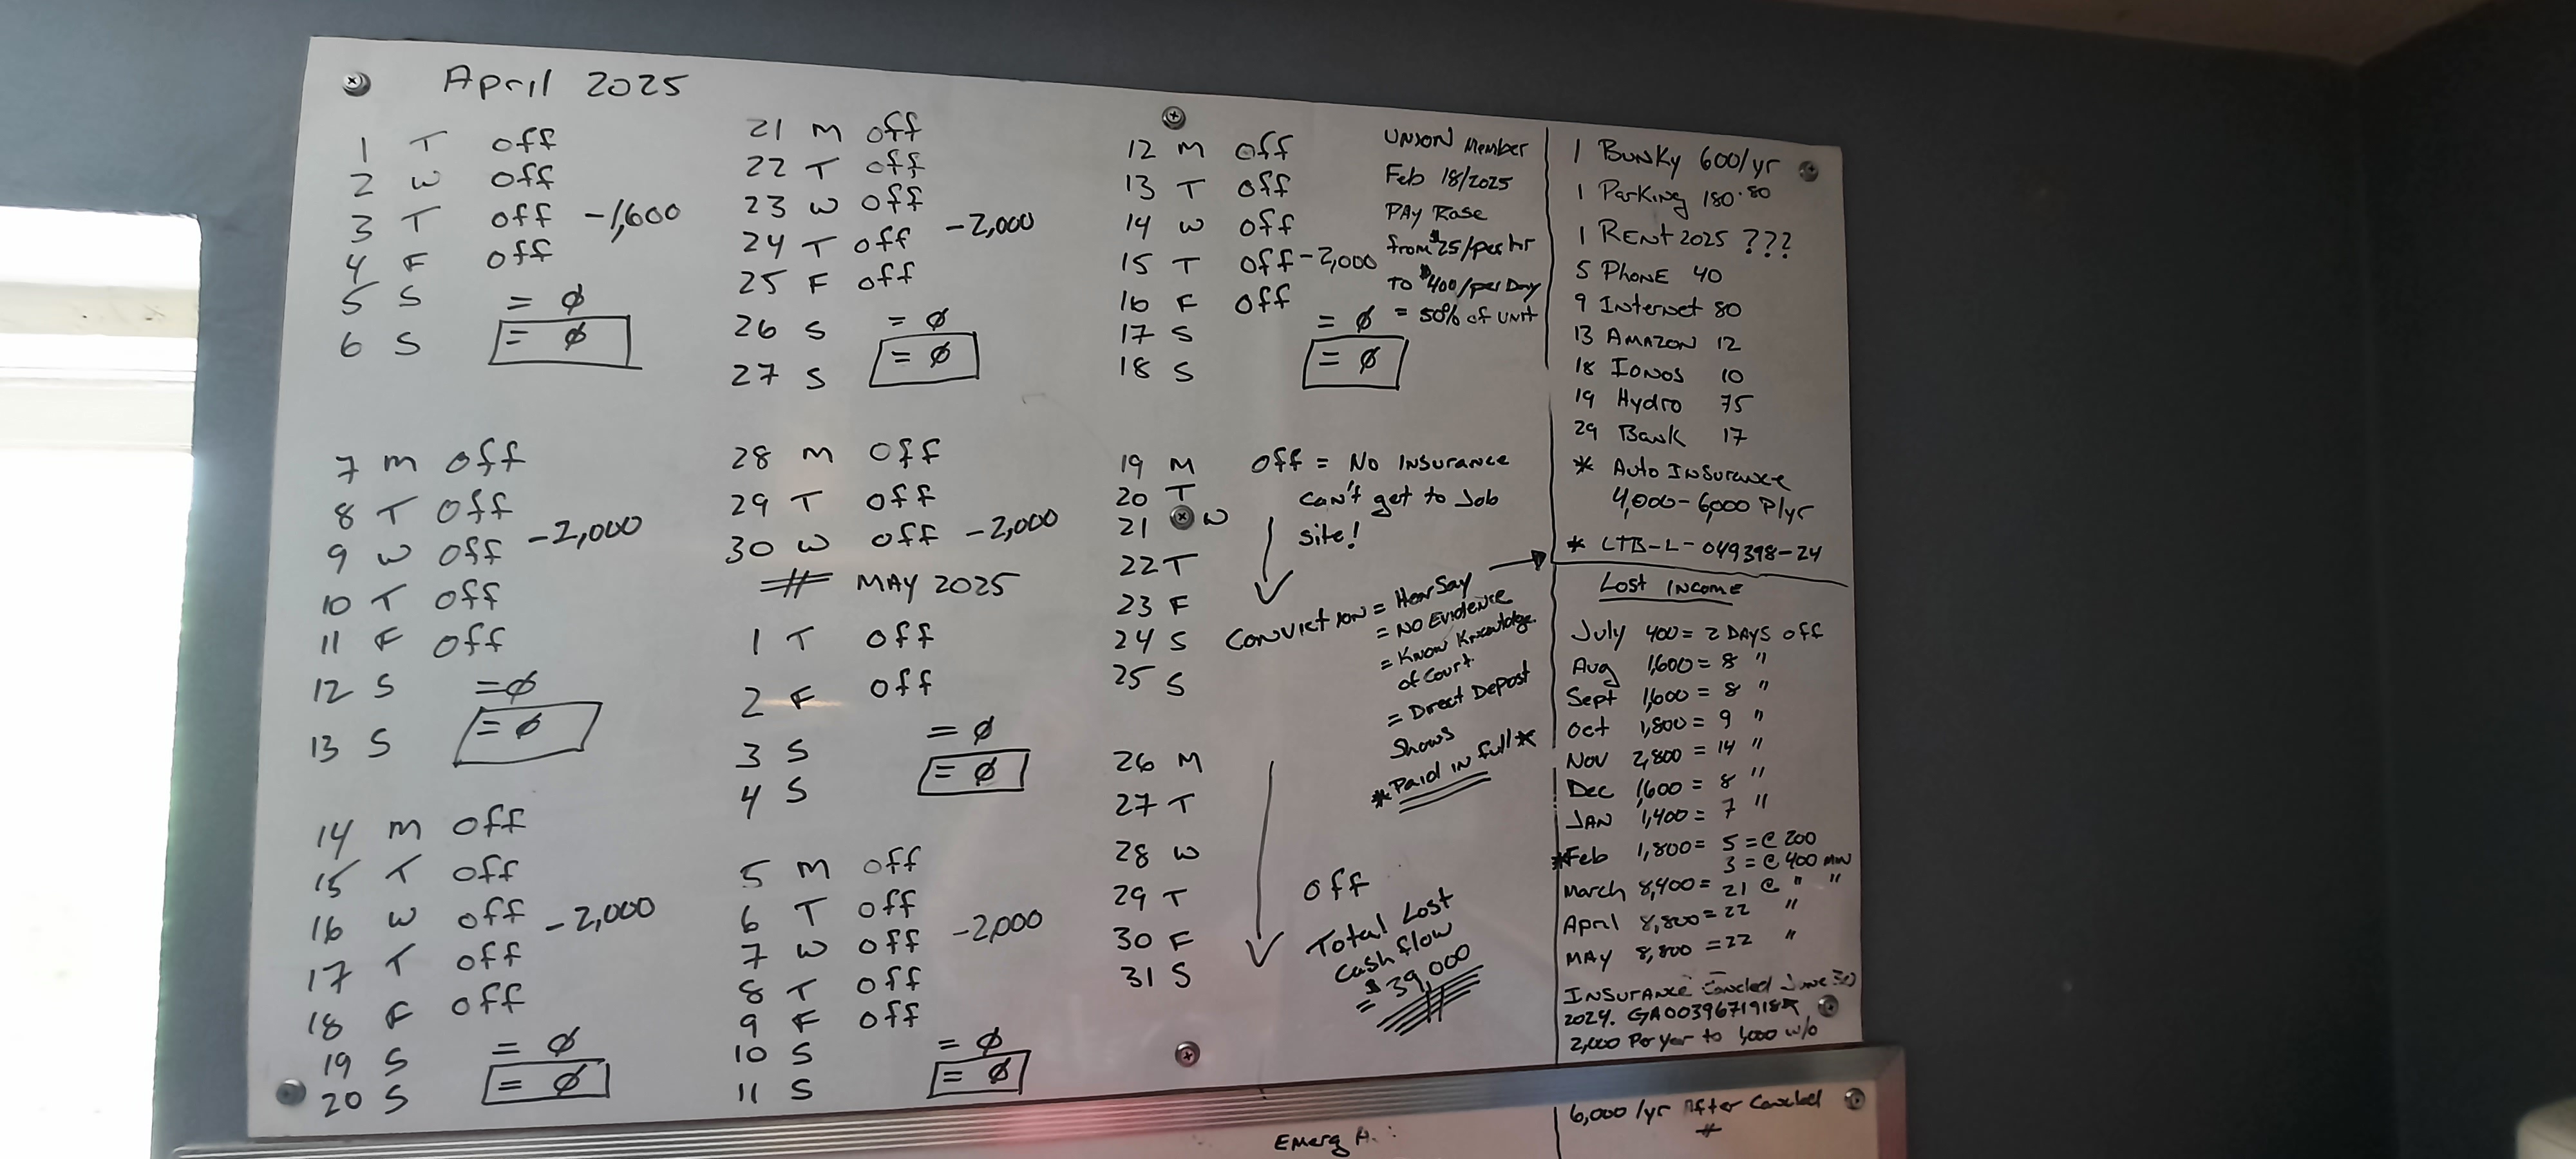 April 2025
1 T off
2 W off
3 T off -1,600
4 F off
5 S = ∅
6 S = ∅
7 M off
8 T off
9 W off -2,000
10 T off
11 F off
12 S =∅
13 S = ∅
14 M off
15 T off
16 W off -2,000
17 T off
18 F off
19 S = ∅
20 S = ∅
21 M off
22 T off
23 W off
24 T off -2,000
25 F off
26 S = ∅
27 S = ∅
28 M off
29 T off
30 W off -2,000
# MAY 2025
1 T off
2 F off
3 S = ∅
4 S = ∅
5 M off
6 T off
7 W off -2,000
8 T off
9 F off
10 S = ∅
11 S = ∅
12 M off
13 T off
14 W off
15 T off -2,000
16 F off
17 S = ∅
18 S = ∅
19 M off = No Insurance
20 T can't get to Job
21 W site!
22 T
23 F
24 S
25 S
26 M
27 T
28 W
29 T off
30 F
31 S
UNION Member
Feb 18/2025
PAY Rase
from $25/per hr
To $400/per Day
= 50% of unit
Conviction = HearSay
= NO Evidence
= Know Knowledge
of Court.
= Direct Depost
Shows
*Paid in full*
Total Lost
Cash flow
= $39,000
1 Bunky 600/yr
1 Parking 180.80
1 RENT 2025 ???
5 PHONE 40
9 Internet 80
13 AMAZON 12
18 IONOS 10
19 Hydro 75
29 Bank 17
* Auto Insurance
4,000-6,000 P/yr
* LTB-L-049398-24
Lost Income
July 400 = 2 DAYS off
Aug 1,600 = 8 "
Sept 1,600 = 8 "
Oct 1,800 = 9 "
Nov 2,800 = 14 "
Dec 1,600 = 8 "
JAN 1,400 = 7 "
*Feb 1,800 = 5 = @ 200
3 = @ 400 MIN
March 8,400 = 21 @ " "
April 8,800 = 22 "
MAY 8,800 = 22 "
INSURANCE Canceled June 30
2024.
2,000 Per year to w/o
6,000 /yr After Canceled
#
Emerg